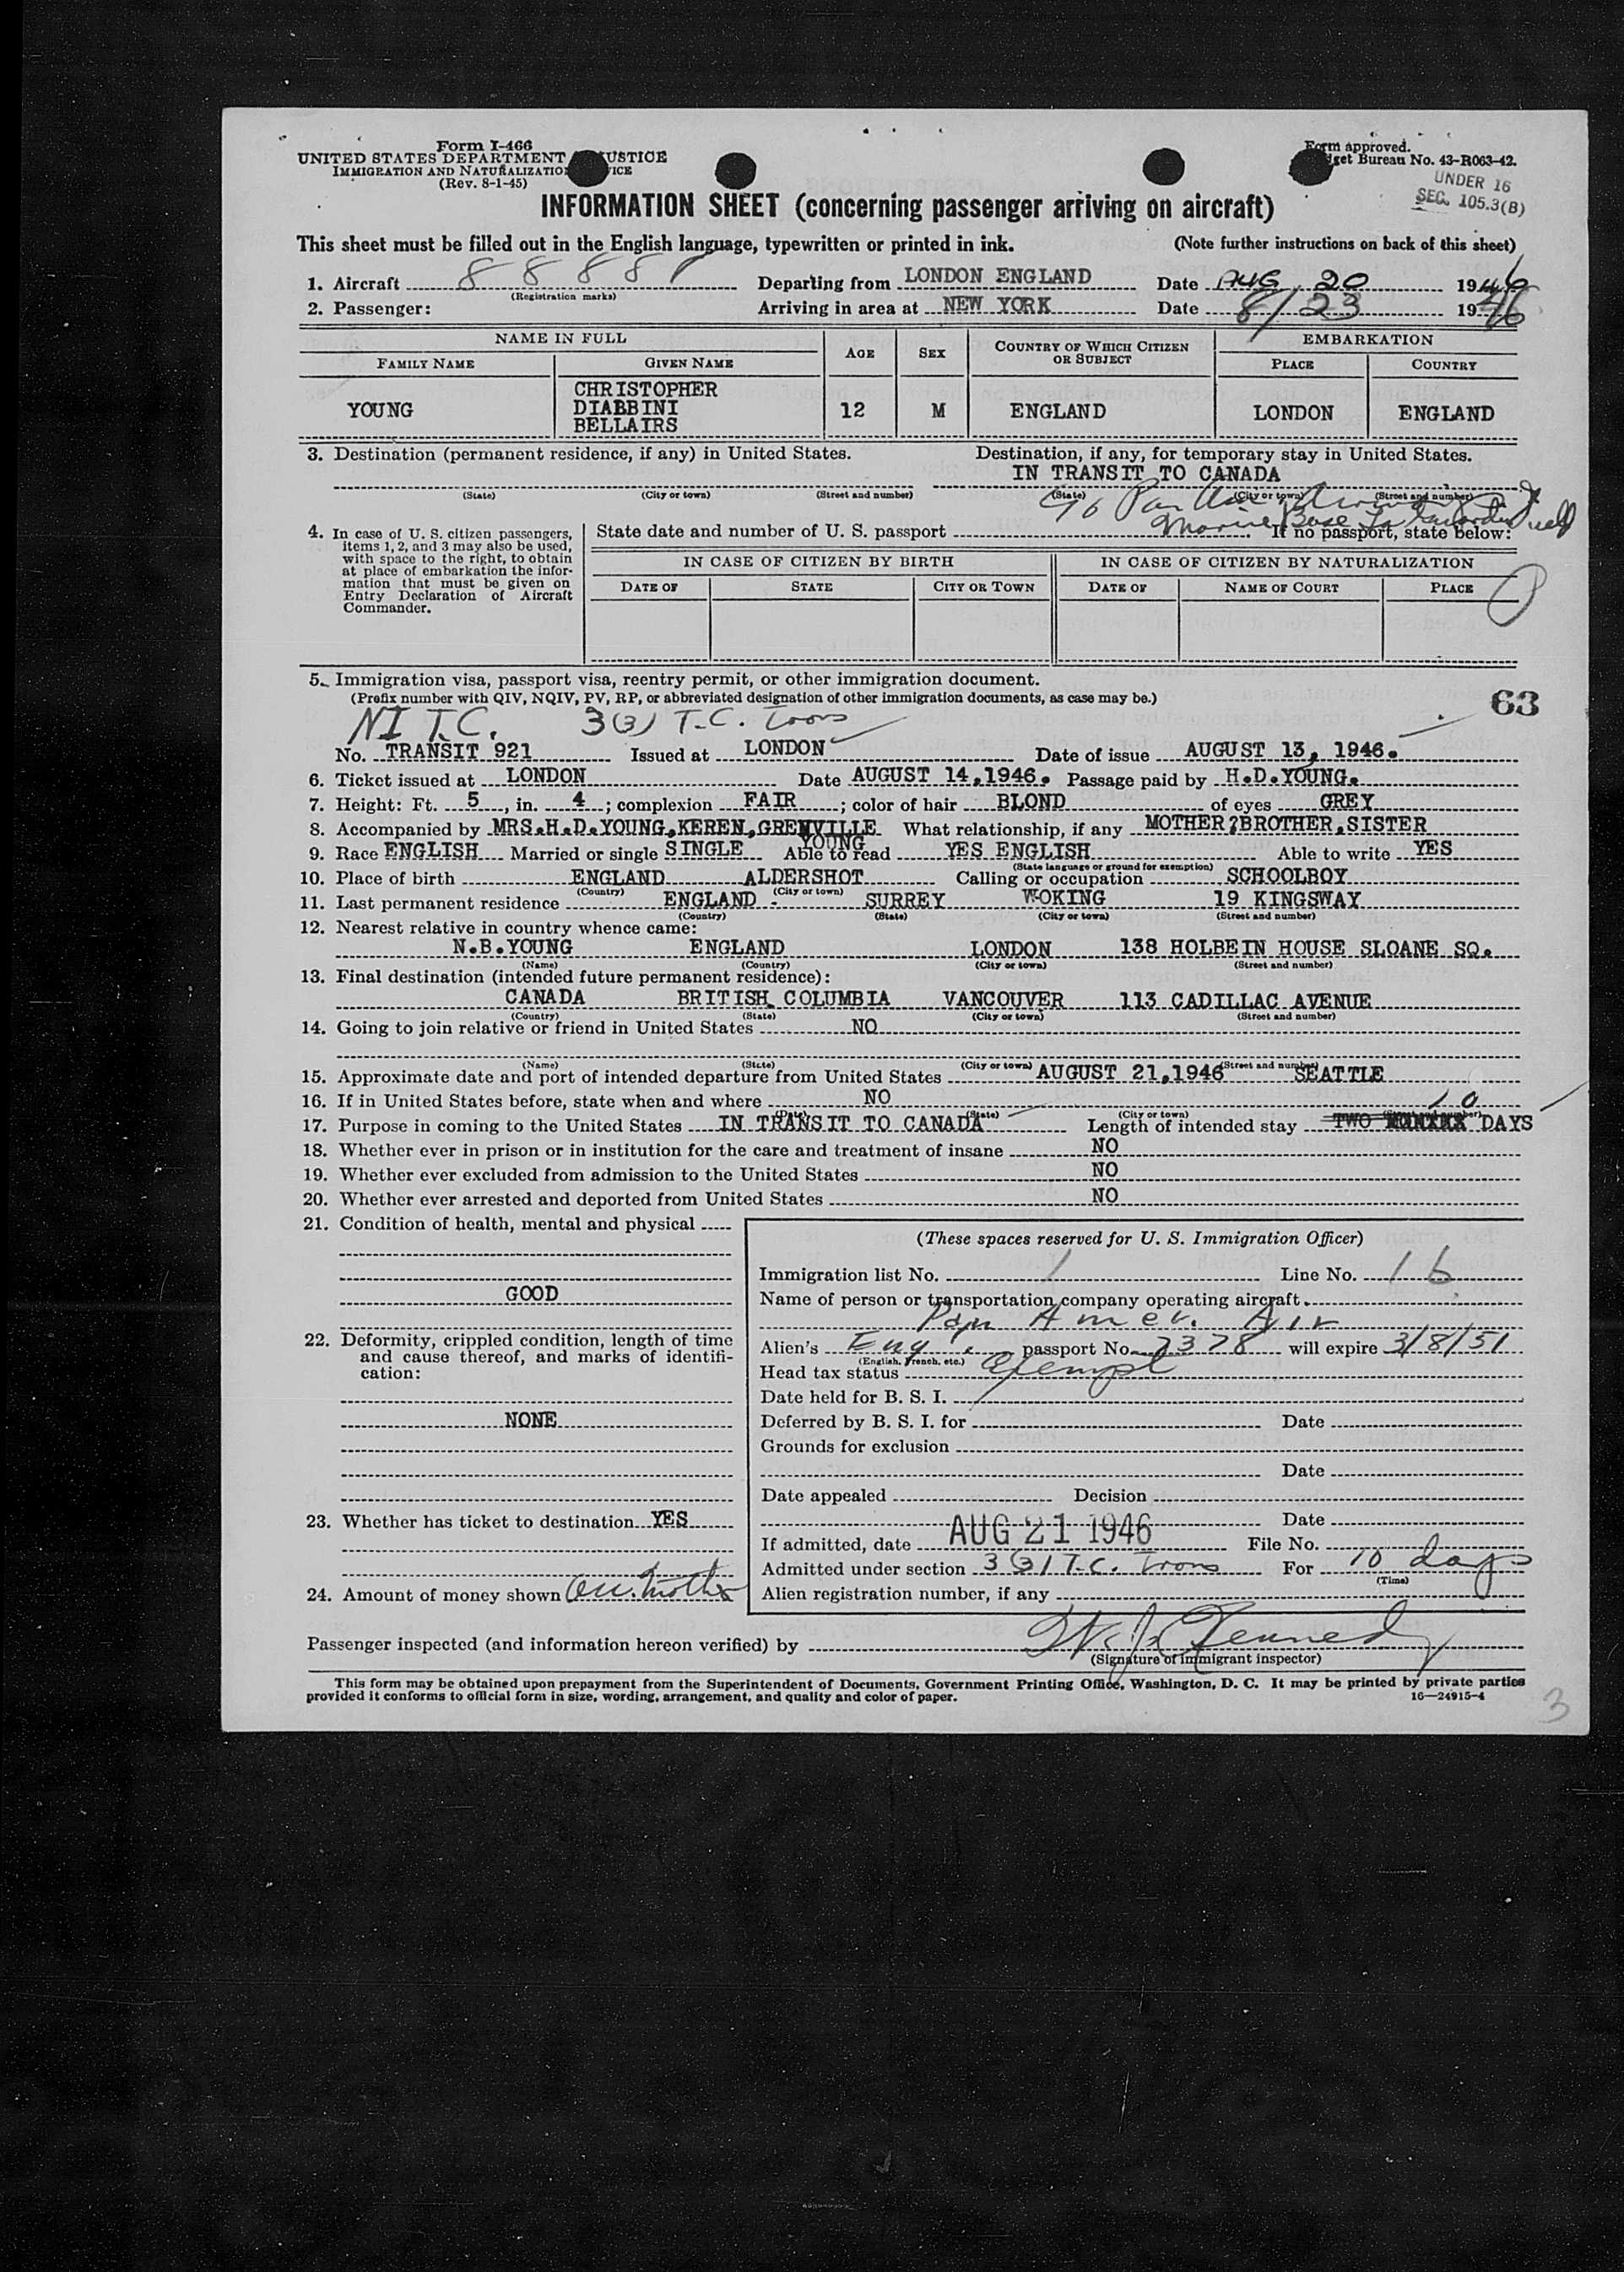 Form I-466
UNITED STATES DEPARTMENT USTICE
IMMIGRATION AND NATURALIZATIO VICE
(Rev. 8-1-45)
Form approved.
get Bureau No. 43-R063-42.
UNDER 16
SEC. 105.3(B)
INFORMATION SHEET (concerning passenger arriving on aircraft)
This sheet must be filled out in the English language, typewritten or printed in ink. (Note further instructions on back of this sheet)
1. Aircraft Departing from LONDON ENGLAND Date AUG 20 1946
(Registration marks)
2. Passenger: Arriving in area at NEW YORK Date 8/23 1946
NAME IN FULL AGE SEX COUNTRY OF WHICH CITIZEN OR SUBJECT EMBARKATION
FAMILY NAME GIVEN NAME PLACE COUNTRY
CHRISTOPHER
YOUNG DIABBINI 12 M ENGLAND LONDON ENGLAND
BELLAIRS
3. Destination (permanent residence, if any) in United States. Destination, if any, for temporary stay in United States.
IN TRANSIT TO CANADA
(State) (City or town) (Street and number) (State) (City or town) (Street and number)
Marine Base
4. In case of U. S. citizen passengers, items 1, 2, and 3 may also be used, with space to the right, to obtain at place of embarkation the information that must be given on Entry Declaration of Aircraft Commander.
State date and number of U. S. passport If no passport, state below:
IN CASE OF CITIZEN BY BIRTH IN CASE OF CITIZEN BY NATURALIZATION
DATE OF STATE CITY OR TOWN DATE OF NAME OF COURT PLACE
5. Immigration visa, passport visa, reentry permit, or other immigration document.
(Prefix number with QIV, NQIV, PV, RP, or abbreviated designation of other immigration documents, as case may be.)
63
NI T.C. 3(3) T.C. Trans
No. TRANSIT 921 Issued at LONDON Date of issue AUGUST 13, 1946.
6. Ticket issued at LONDON Date AUGUST 14,1946. Passage paid by H.D.YOUNG.
7. Height: Ft. 5, in. 4; complexion FAIR; color of hair BLOND of eyes GREY
8. Accompanied by MRS.H.D.YOUNG,KEREN,GRENVILLE YOUNG What relationship, if any MOTHER,BROTHER,SISTER
9. Race ENGLISH Married or single SINGLE Able to read YES ENGLISH Able to write YES
(State language or ground for exemption)
10. Place of birth ENGLAND ALDERSHOT Calling or occupation SCHOOLBOY
(Country) (City or town)
11. Last permanent residence ENGLAND - SURREY WOKING 19 KINGSWAY
(Country) (State) (City or town) (Street and number)
12. Nearest relative in country whence came:
N.B.YOUNG ENGLAND LONDON 138 HOLBEIN HOUSE SLOANE SQ.
(Name) (Country) (City or town) (Street and number)
13. Final destination (intended future permanent residence):
CANADA BRITISH COLUMBIA VANCOUVER 113 CADILLAC AVENUE
(Country) (State) (City or town) (Street and number)
14. Going to join relative or friend in United States NO
(Name) (State) (City or town) (Street and number)
15. Approximate date and port of intended departure from United States AUGUST 21,1946 SEATTLE
16. If in United States before, state when and where NO
(Date) (State) (City or town) (Street and number)
17. Purpose in coming to the United States IN TRANSIT TO CANADA Length of intended stay TWO 10 DAYS
18. Whether ever in prison or in institution for the care and treatment of insane NO
19. Whether ever excluded from admission to the United States NO
20. Whether ever arrested and deported from United States NO
21. Condition of health, mental and physical
GOOD
22. Deformity, crippled condition, length of time and cause thereof, and marks of identification:
NONE
23. Whether has ticket to destination YES
24. Amount of money shown
(These spaces reserved for U. S. Immigration Officer)
Immigration list No. 1 Line No. 16
Name of person or transportation company operating aircraft.
Pan Amer. Air
Alien's Eng. passport No. 2378 will expire 3/8/51
(English, French, etc.)
Head tax status Exempt
Date held for B. S. I.
Deferred by B. S. I. for Date
Grounds for exclusion
Date
Date appealed Decision
Date
If admitted, date AUG 21 1946 File No.
Admitted under section 3(3) T.C. Trans For 10 days
(Time)
Alien registration number, if any
Passenger inspected (and information hereon verified) by Kennedy
(Signature of immigrant inspector)
This form may be obtained upon prepayment from the Superintendent of Documents, Government Printing Office, Washington, D. C. It may be printed by private parties
provided it conforms to official form in size, wording, arrangement, and quality and color of paper. 16—24915-4
3